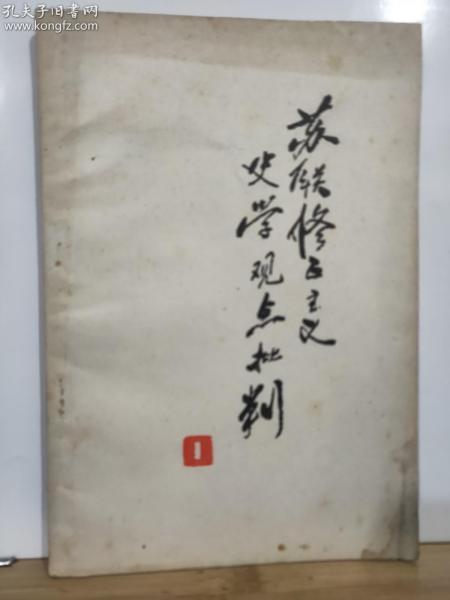 孔夫子旧书网
www.kongfz.com
苏联修正主义
史学观点批判
1